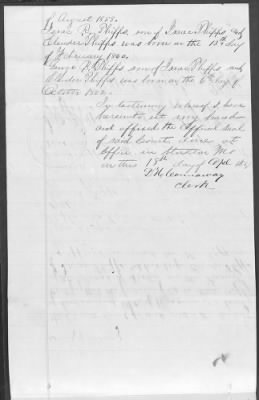 August 1858.
Isaac B. Phipps, son of Isaac Phipps and
Phipps was born on the 13th day
of February 1860.
George Phipps son of Isaac Phipps and
Phipps was born on the 6th day of
October 1862.
In testimony whereof I have
hereunto set my hand
and affixed the official seal
of said County done at
office in Mo
on this 18th day of Apl
Cannaway
Clerk